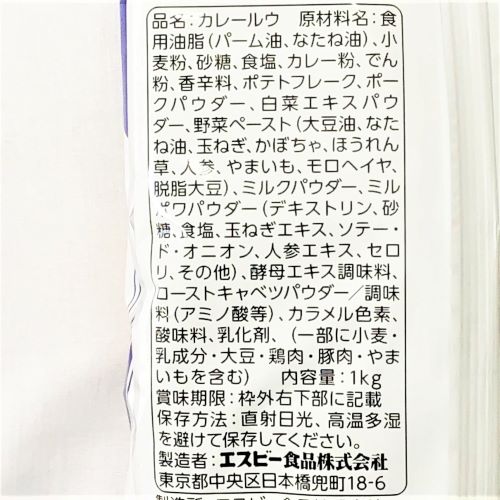 品名：カレールウ　原材料名：食
用油脂（パーム油、なたね油）、小
麦粉、砂糖、食塩、カレー粉、でん
粉、香辛料、ポテトフレーク、ポー
クパウダー、白菜エキスパウ
ダー、野菜ペースト（大豆油、なた
ね油、玉ねぎ、かぼちゃ、ほうれん
草、人参、やまいも、モロヘイヤ、
脱脂大豆）、ミルクパウダー、ミル
ポワパウダー（デキストリン、砂
糖、食塩、玉ねぎエキス、ソテー・
ド・オニオン、人参エキス、セロ
リ、その他）、酵母エキス調味料、
ローストキャベツパウダー／調味
料（アミノ酸等）、カラメル色素、
酸味料、乳化剤、（一部に小麦・
乳成分・大豆・鶏肉・豚肉・やま
いもを含む）　内容量：1kg
賞味期限：枠外右下部に記載
保存方法：直射日光、高温多湿
を避けて保存してください。
製造者：エスビー食品株式会社
東京都中央区日本橋兜町18-6